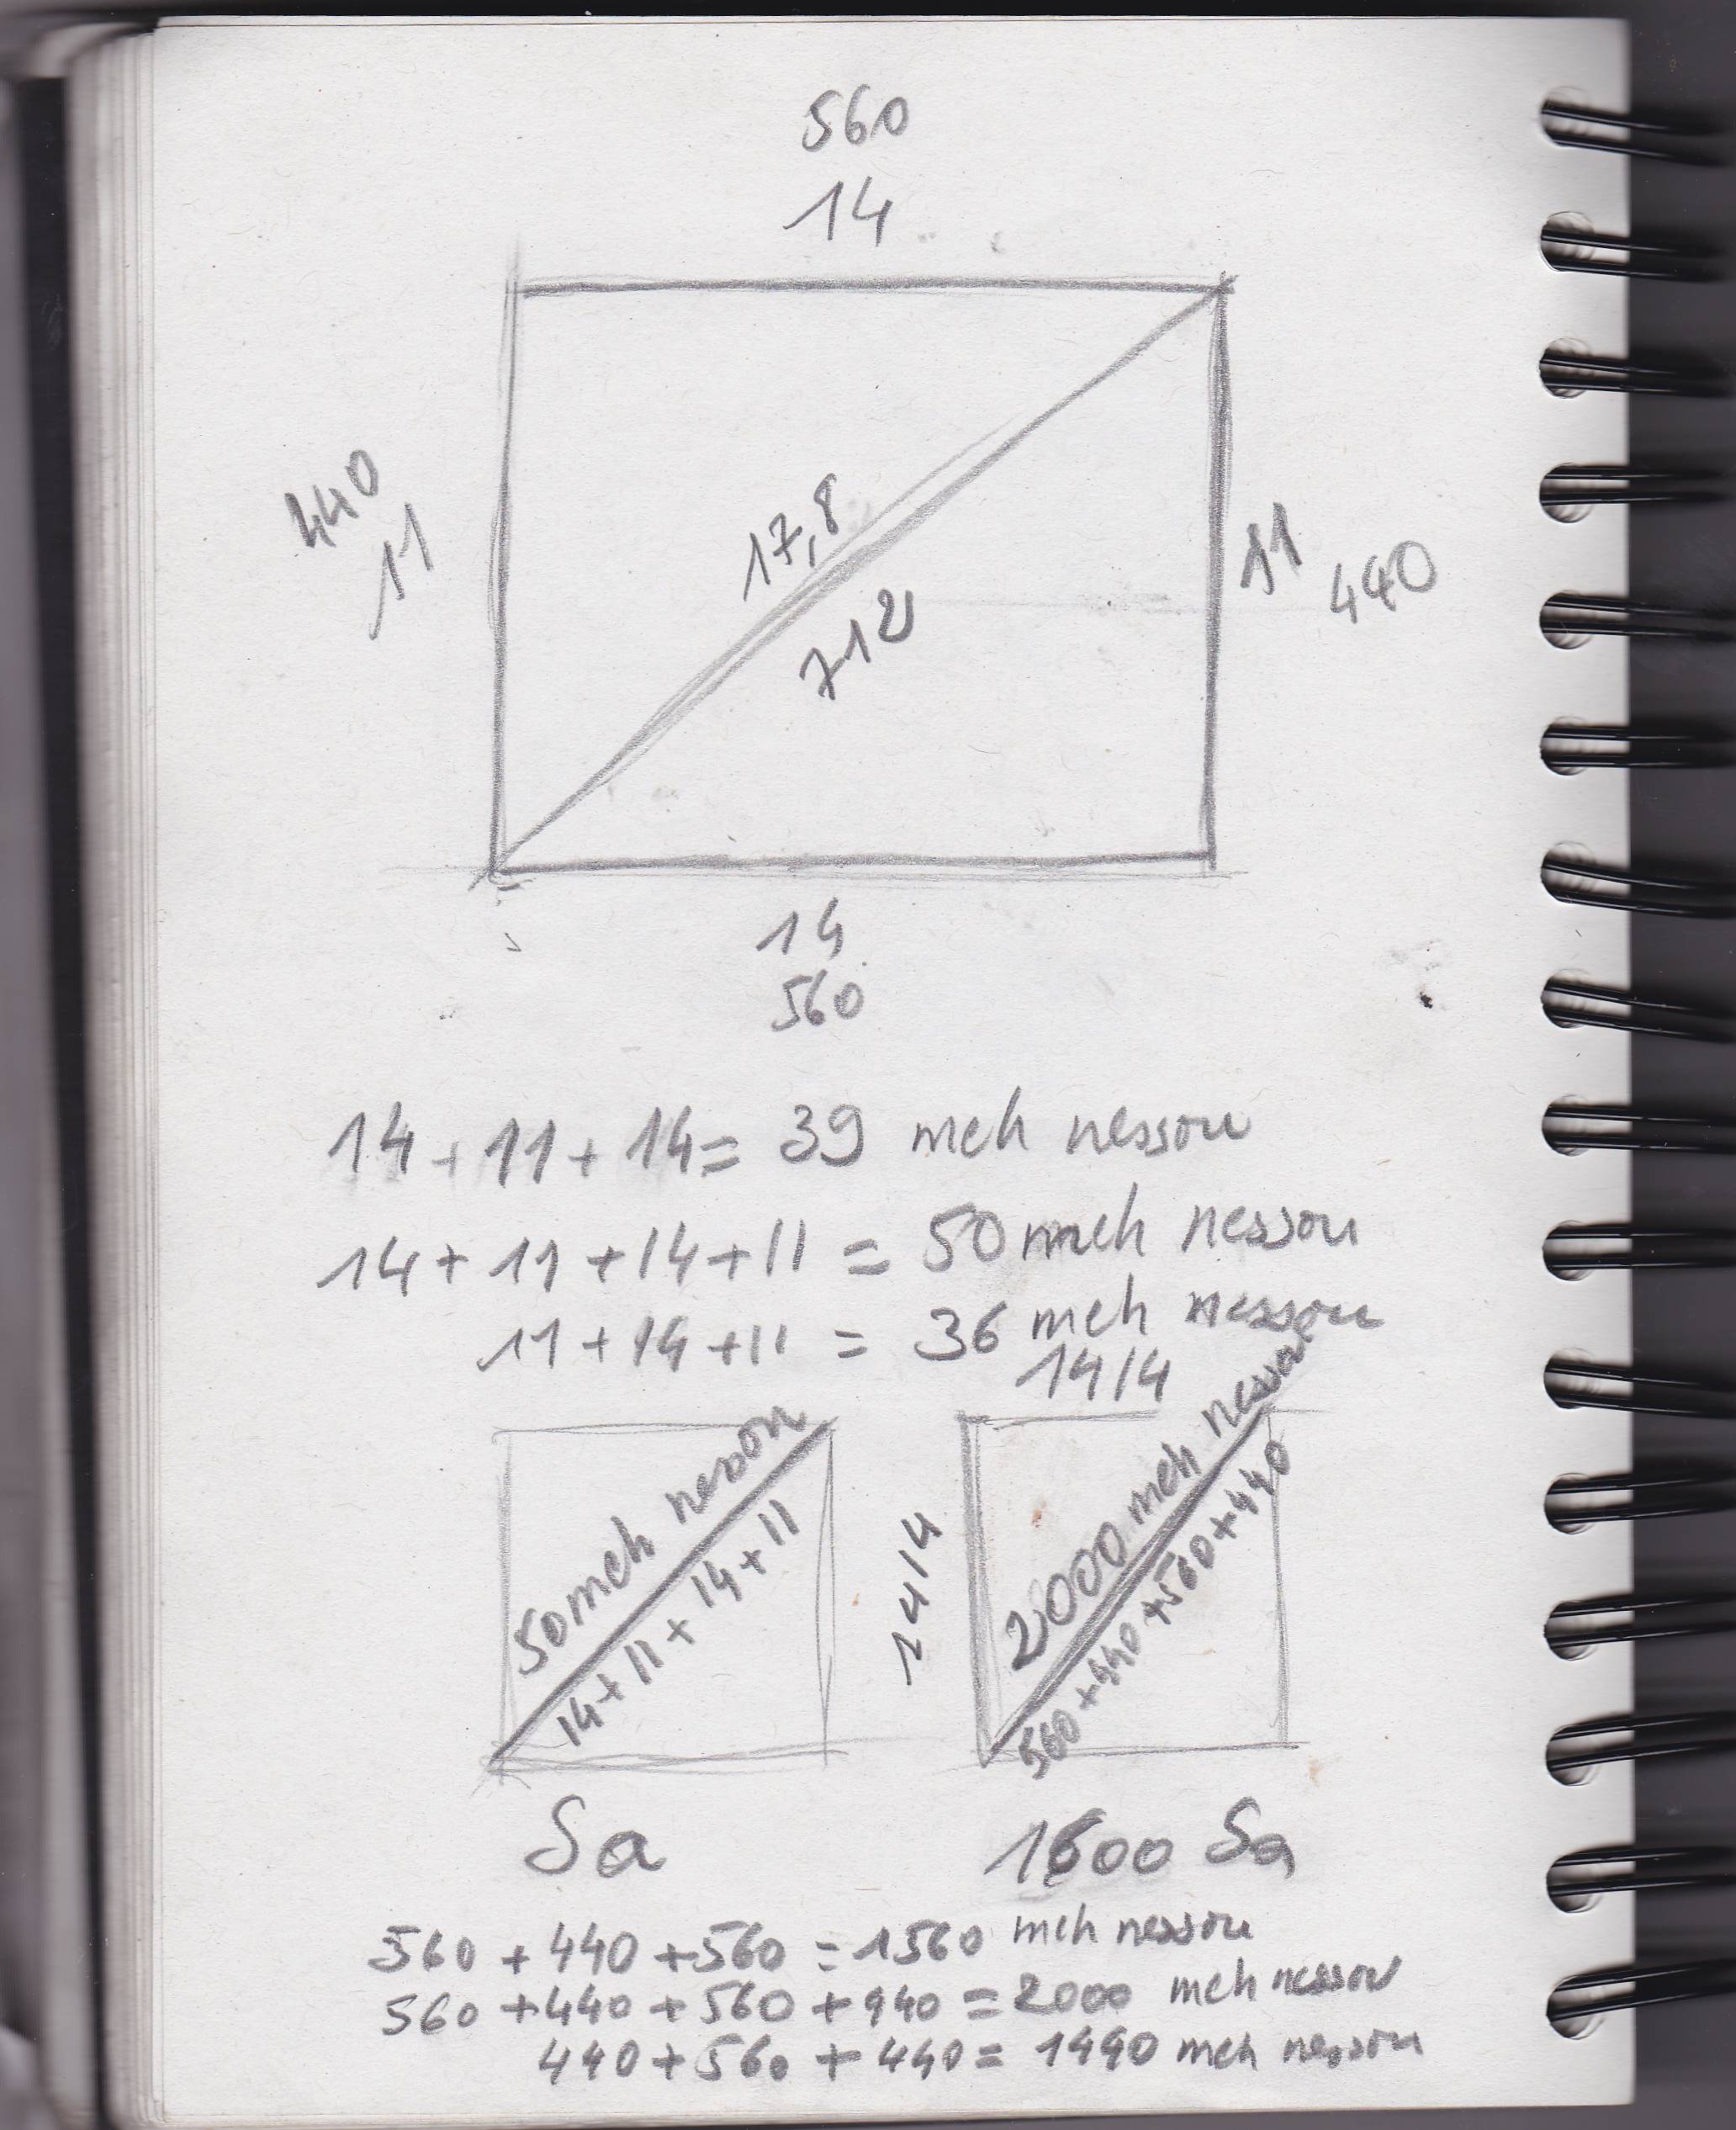 560
14
440
11
17,8
712
11
440
14
560
14 + 11 + 14 = 39 meh nessou
14 + 11 + 14 + 11 = 50 meh nessou
11 + 14 + 11 = 36 meh nessou
1414
50 meh nesson
14 + 11 + 14 + 11
1414
2000 meh
560 + 440 + 560 + 440
Sa
1600 Sa
560 + 440 + 560 = 1560 meh nessou
560 + 440 + 560 + 440 = 2000 meh nessou
440 + 560 + 440 = 1440 meh nessou